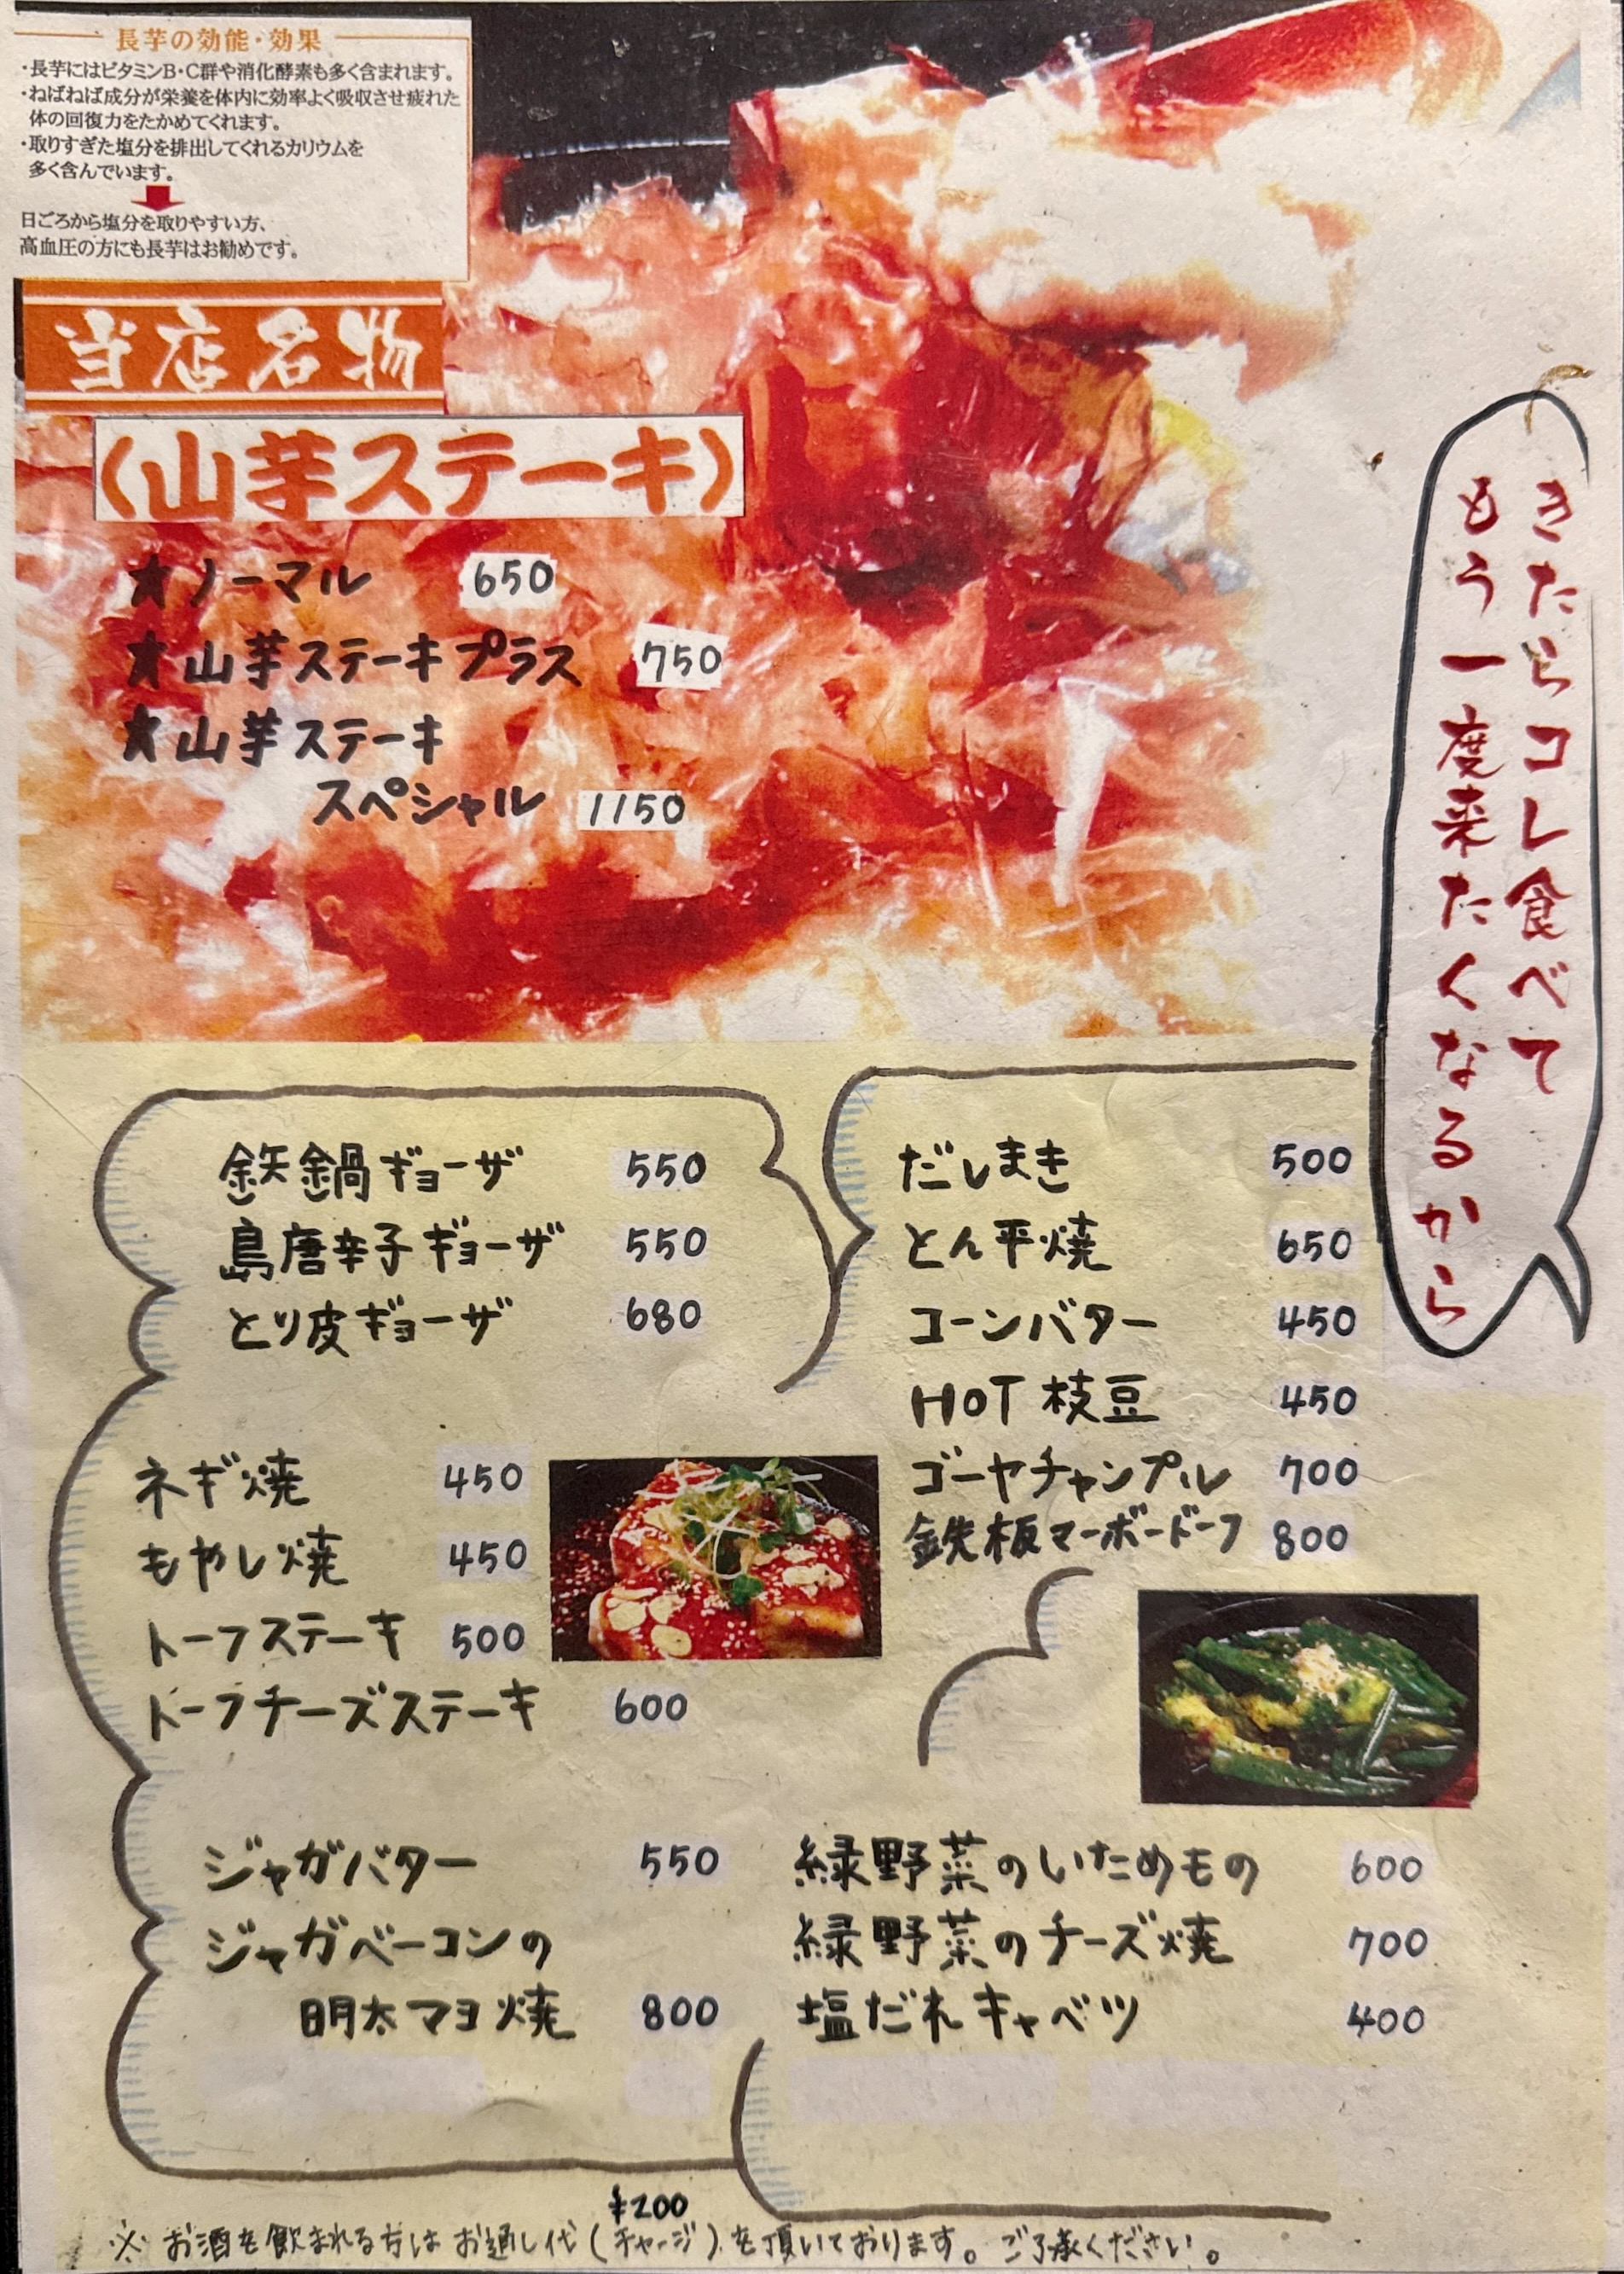 長芋の効能・効果
・長芋にはビタミンB・C群や消化酵素も多く含まれます。
・ねばねば成分が栄養を体内に効率よく吸収させ疲れた
体の回復力をたかめてくれます。
・取りすぎた塩分を排出してくれるカリウムを
多く含んでいます。
日ごろから塩分を取りやすい方、
高血圧の方にも長芋はお勧めです。
当店名物
(山芋ステーキ)
★ノーマル 650
★山芋ステーキプラス 750
★山芋ステーキ
スペシャル 1150
きたらコレ食べて
もう一度来たくなるから
鉄鍋ギョーザ 550
島唐辛子ギョーザ 550
とり皮ギョーザ 680
ネギ焼 450
もやし焼 450
トーフステーキ 500
トーフチーズステーキ 600
だしまき 500
とん平焼 650
コーンバター 450
HOT 枝豆 450
ゴーヤチャンプル 700
鉄板マーボードーフ 800
ジャガバター 550
ジャガベーコンの
明太マヨ焼 800
緑野菜のいためもの 600
緑野菜のチーズ焼 700
塩だれキャベツ 400
¥200
※ お酒を飲まれる方はお通し代(チャージ)を頂いております。ご了承ください。